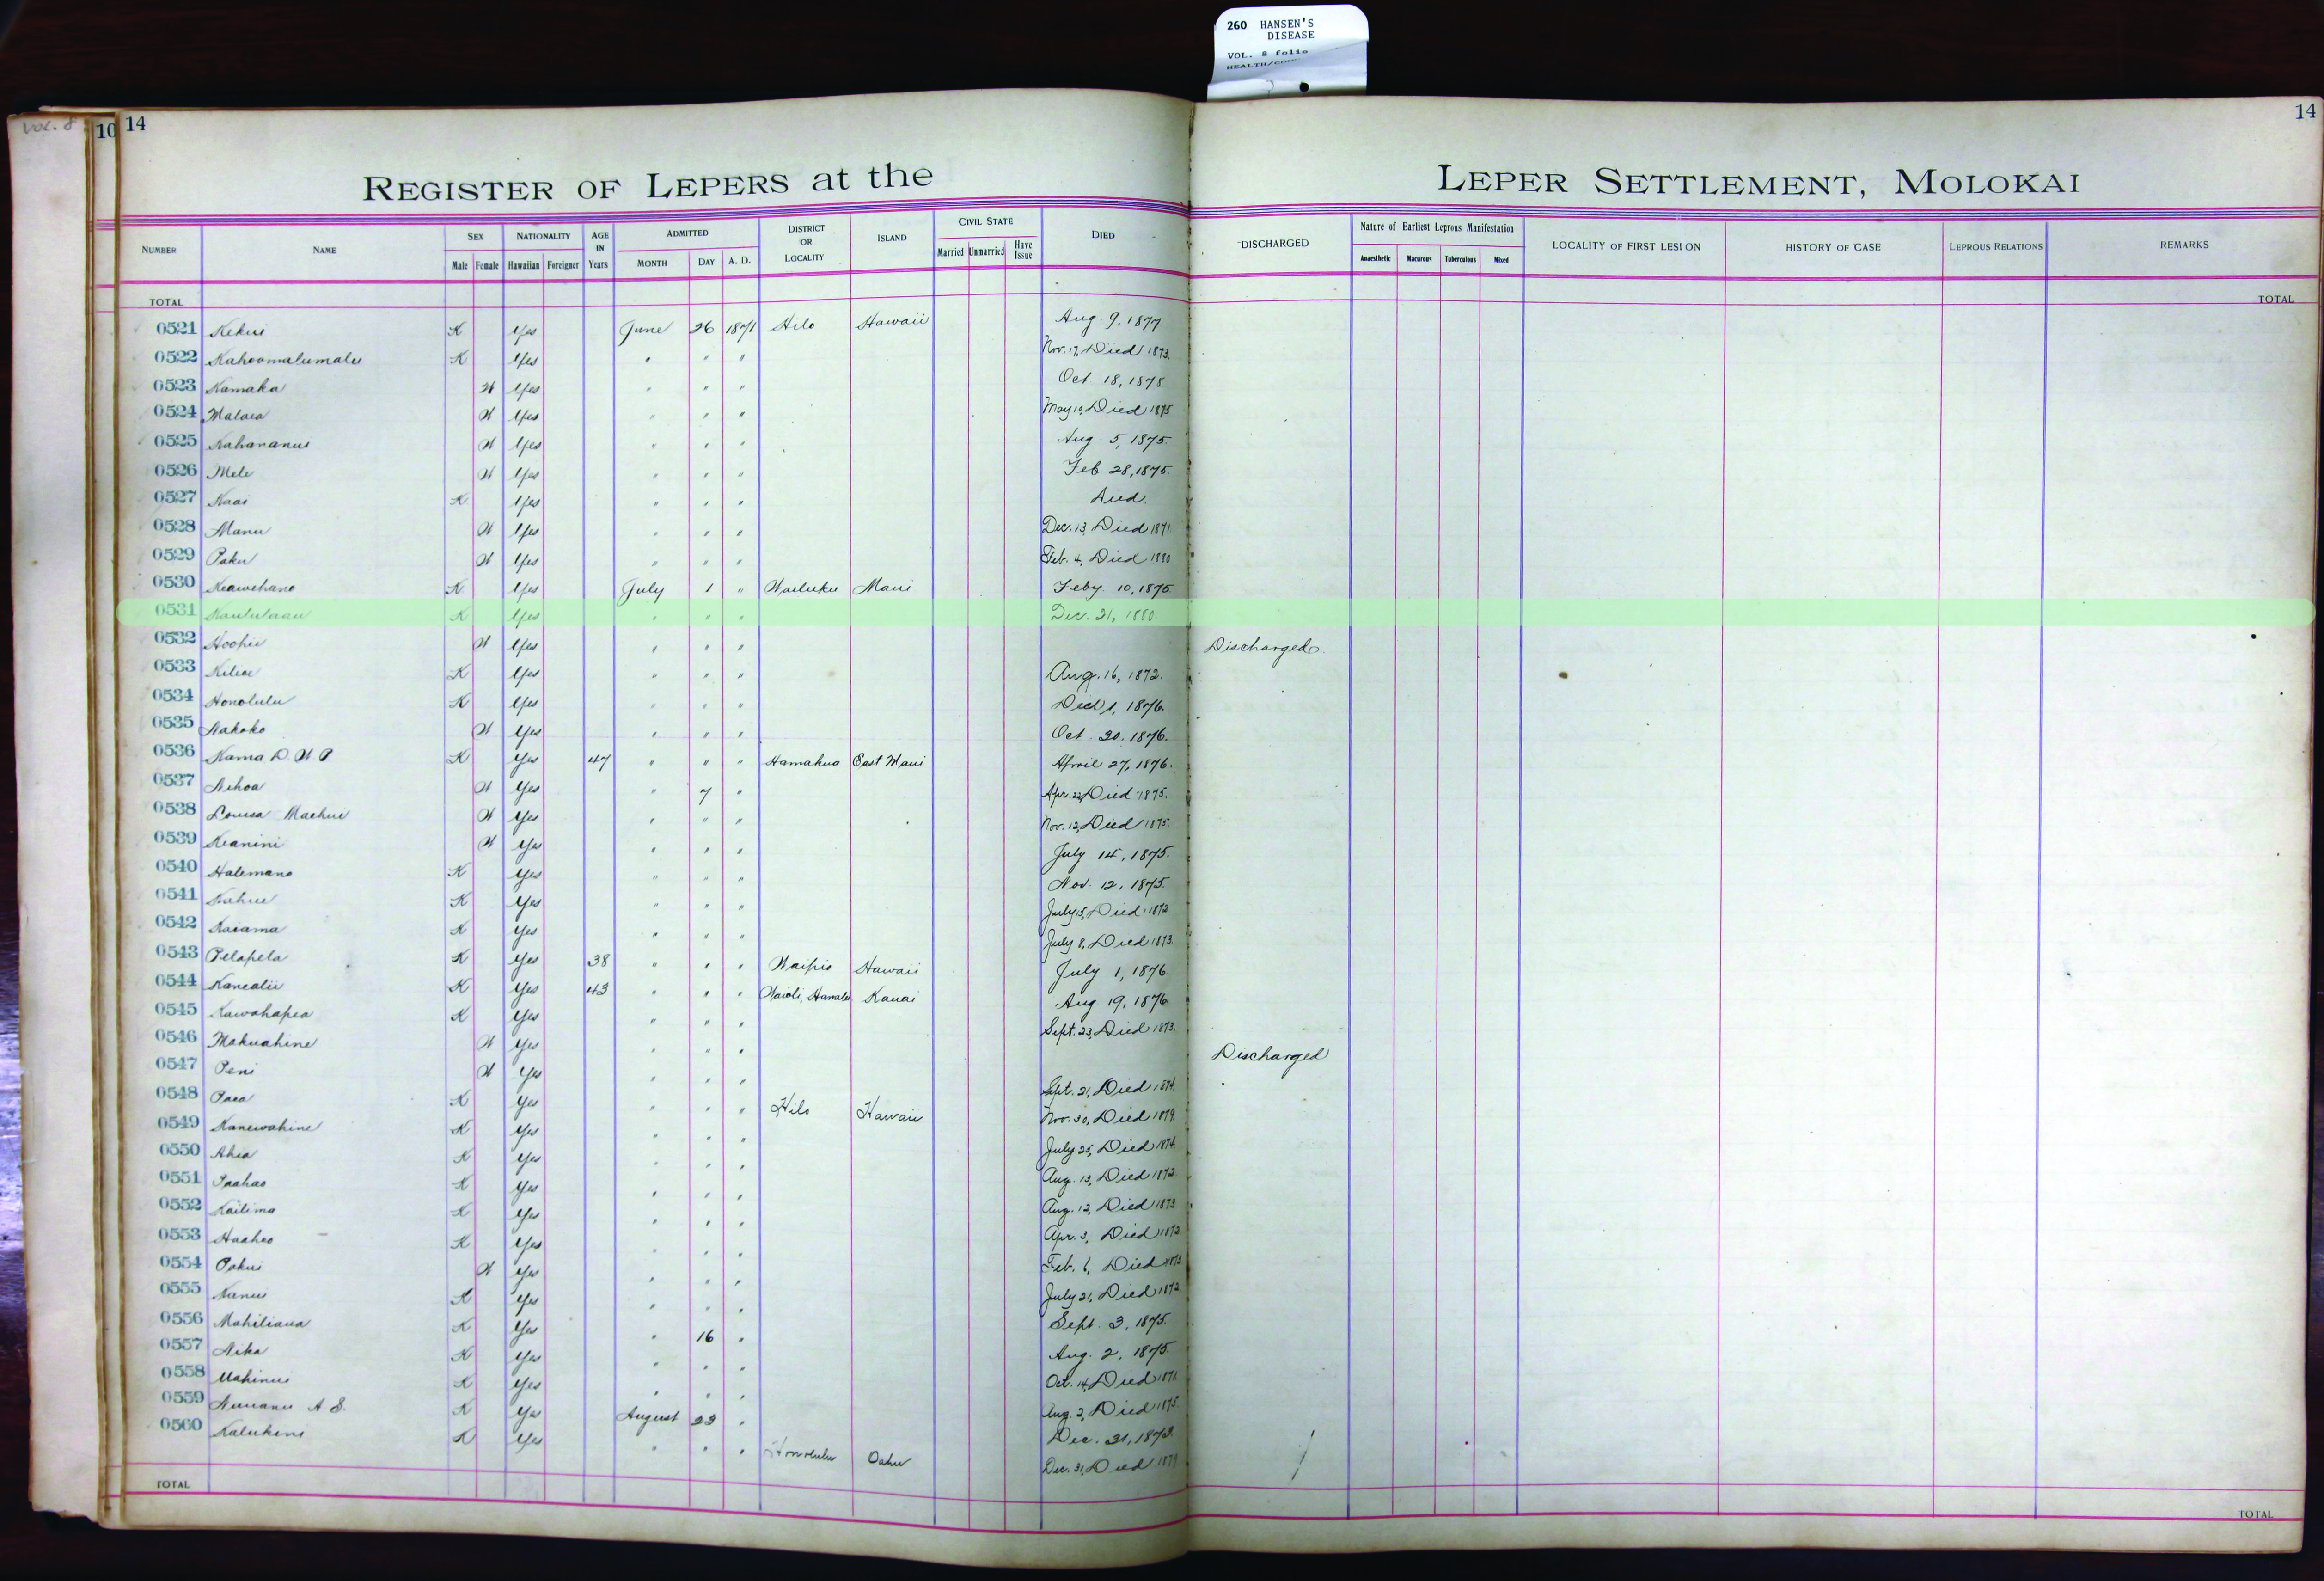 260 HANSEN'S
DISEASE
VOL. 8 folio
HEALTH/
Vol. 8
10
14
14
REGISTER OF LEPERS at the LEPER SETTLEMENT, MOLOKAI
NUMBER NAME SEX Male Female NATIONALITY Hawaiian Foreigner AGE IN Years ADMITTED MONTH DAY A. D. DISTRICT OR LOCALITY ISLAND CIVIL STATE Married Unmarried Have Issue DIED DISCHARGED Nature of Earliest Leprous Manifestation Anaesthetic Macurous Tuberculous Mixed LOCALITY OF FIRST LESION HISTORY OF CASE LEPROUS RELATIONS REMARKS
TOTAL TOTAL
0521 Kekui K Yes June 26 1871 Hilo Hawaii Aug 9, 1877
0522 Kahoomalumalu K Yes " " " Nov. 17, Died 1873.
0523 Kamaka W Yes " " " Oct 18, 1875
0524 Malaea W Yes " " " May 10, Died 1875
0525 Kahananui W Yes " " " Aug. 5, 1875.
0526 Mele W Yes " " " Feb 28, 1875.
0527 Kaai K Yes " " " Died.
0528 Manu W Yes " " " Dec. 13, Died 1871
0529 Paku W Yes " " " Feb. 4, Died 1880
0530 Keawehano K Yes July 1 " Wailuku Maui Feby 10, 1875
0531 Kaululaau K Yes " " " Dec. 21, 1880.
0532 Hoohii W Yes " " " Discharged.
0533 Kiliae K Yes " " " Aug. 16, 1872.
0534 Honolulu K Yes " " " 1, 1876.
0535 Nakoko W Yes " " " Oct. 20, 1876.
0536 Kama D. W P K Yes 47 " " " Hamakua East Maui April 27, 1876.
0537 Nihoa W Yes " 7 " Apr. 22, Died 1875.
0538 Louisa Maehui W Yes " " " Nov. 12, Died 1875.
0539 Keanini W Yes " " " July 14, 1875.
0540 Halemano K Yes " " " Nov. 12, 1875.
0541 Kahue K Yes " " " July 15, Died 1872
0542 Kaiama K Yes " " " July 8, Died 1873.
0543 Pelapela K Yes 38 " " " Waipio Hawaii July 1, 1876
0544 Kanealii K Yes 43 " " " Waioli, Hanalei Kauai Aug 19, 1876
0545 Kawahapea K Yes " " " Sept. 23, Died 1873.
0546 Makuahine W Yes " " " Discharged
0547 Peni W Yes " " " Sept. 21, Died 1874.
0548 Paea K Yes " " " Hilo Hawaii Nov. 30, Died 1879.
0549 Kanewahine K Yes " " " July 25, Died 1874.
0550 Ahia K Yes " " " Aug. 13, Died 1872.
0551 Paahao K Yes " " " Aug. 12, Died 1873
0552 Kailima K Yes " " " Apr. 3, Died 1872
0553 Haaheo K Yes " " " Feb. 6, Died 1873
0554 Pakui W Yes " " " July 21, Died 1872
0555 Nanui K Yes " " " Sept. 3, 1875.
0556 Mahiliana K Yes " 16 " Aug. 2, 1875.
0557 Nika K Yes " " " Oct. 14, Died 1871
0558 Mahinui K Yes " " " Aug. 2, Died 1875.
0559 Nuuanu A S. K Yes August 23 " Dec. 31, 1873
0560 Kalukini K Yes " " " Honolulu Oahu Dec. 31, Died 1879
TOTAL TOTAL